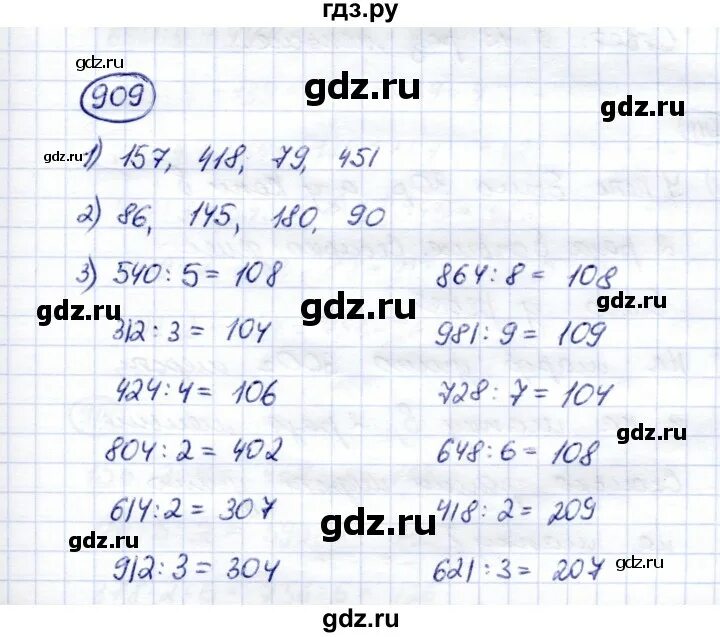 гдз.ру
gdz.ru
909
gdz.ru
gdz.ru
gdz.ru
1) 157, 418, 79, 451
2) 86, 145, 180, 90
3) 540 : 5 = 108 864 : 8 = 108
gdz.ru gdz.ru gdz.ru
312 : 3 = 104 981 : 9 = 109
424 : 4 = 106 728 : 7 = 104
gdz.ru
804 : 2 = 402 648 : 6 = 108
614 : 2 = 307 418 : 2 = 209
gdz.ru gdz.ru
912 : 3 = 304 621 : 3 = 207
gdz.ru
gdz.ru